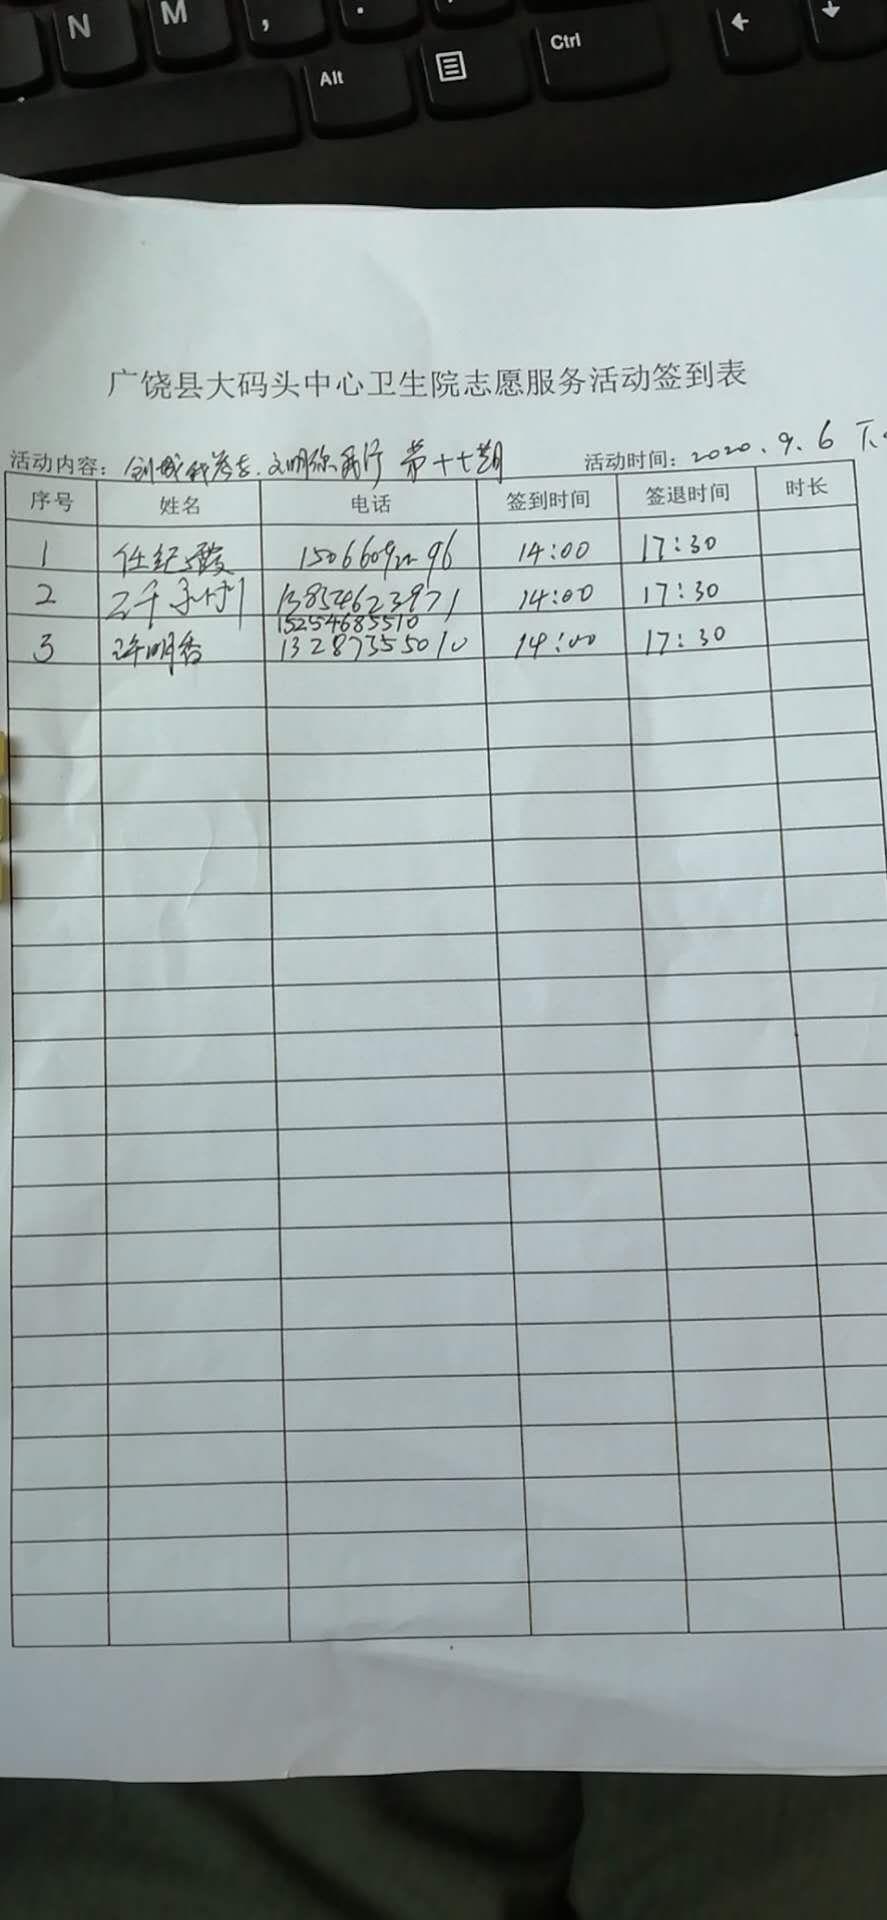 N M , .
Alt Ctrl ← ↓
广饶县大码头中心卫生院志愿服务活动签到表
活动内容: 创城我参与.文明你我行 第十七期 活动时间: 2020.9.6 下
序号 姓名 电话 签到时间 签退时间 时长
1 任纪霞 14:00 17:30
2 13854623971 14:00 17:30
15254685510
3 许明香 13287355010 14:00 17:30